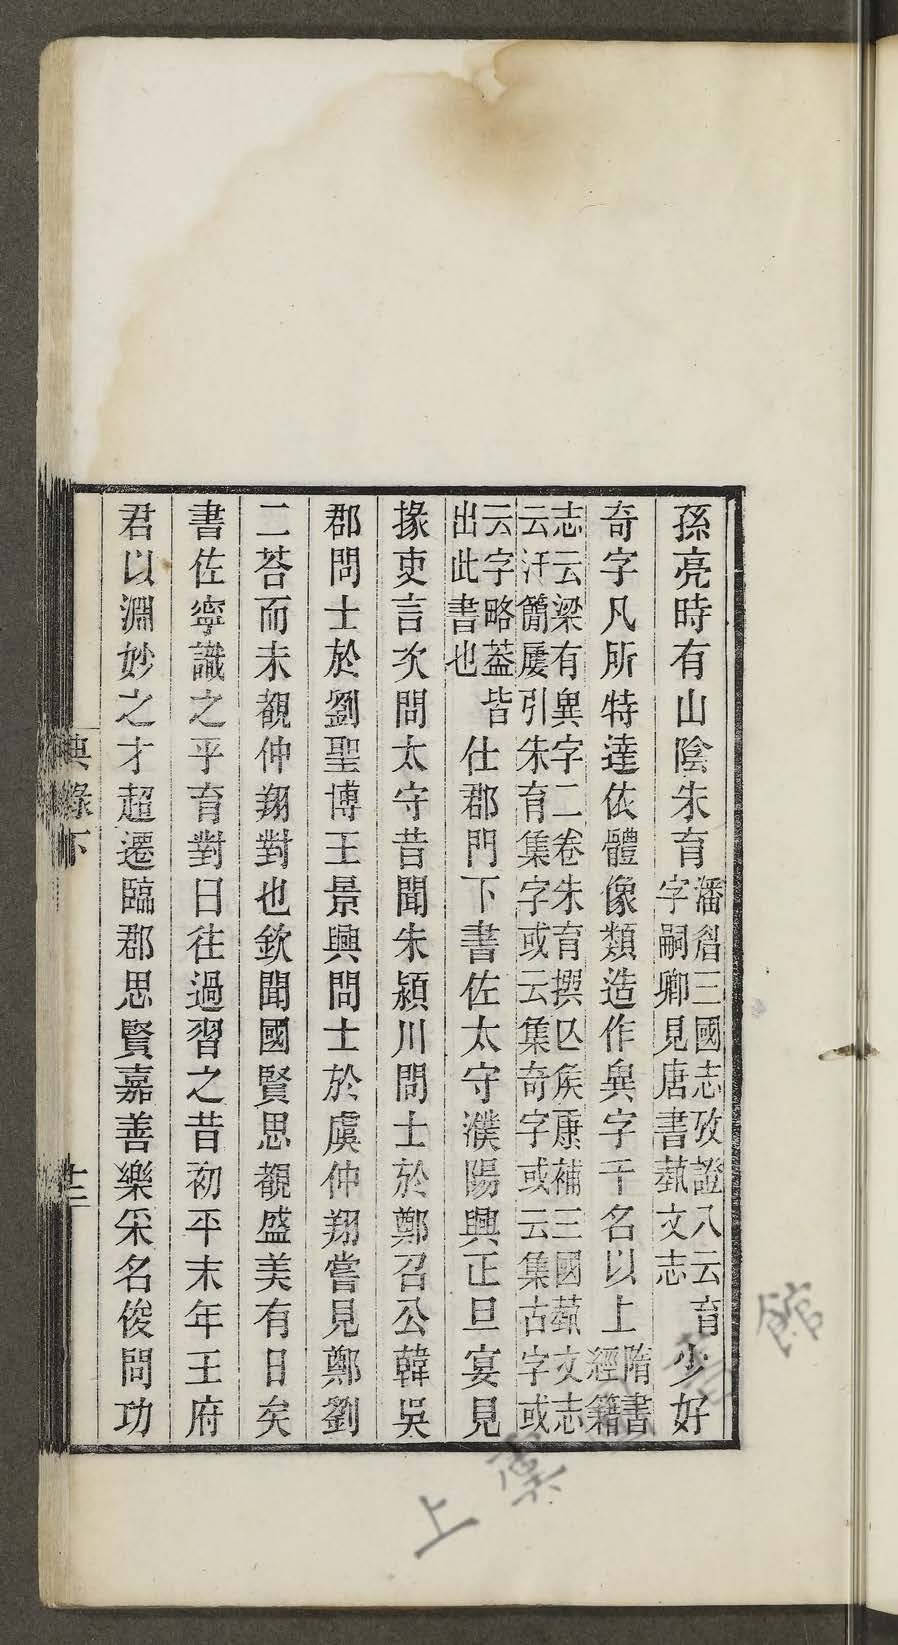 孫亮時有山陰朱育潘眉三國志攷證八云育字嗣卿見唐書蓺文志少好
奇字凡所特達依體像類造作異字千名以上隋書經籍
志云梁有異字二卷朱育撰亾侯康補三國蓺文志
云汗簡屢引朱育集字或云集奇字或云集古字或
云字略葢皆出此書也仕郡門下書佐太守濮陽興正旦宴見
掾吏言次問太守昔聞朱潁川問士於鄭召公韓吳
郡問士於劉聖博王景興問士於虞仲翔嘗見鄭劉
二荅而未覩仲翔對也欽聞國賢思覩盛美有日矣
書佐寧識之乎育對曰往過習之昔初平末年王府
君以淵妙之才超遷臨郡思賢嘉善樂采名俊問功
典錄下
十二
上虞圖書館